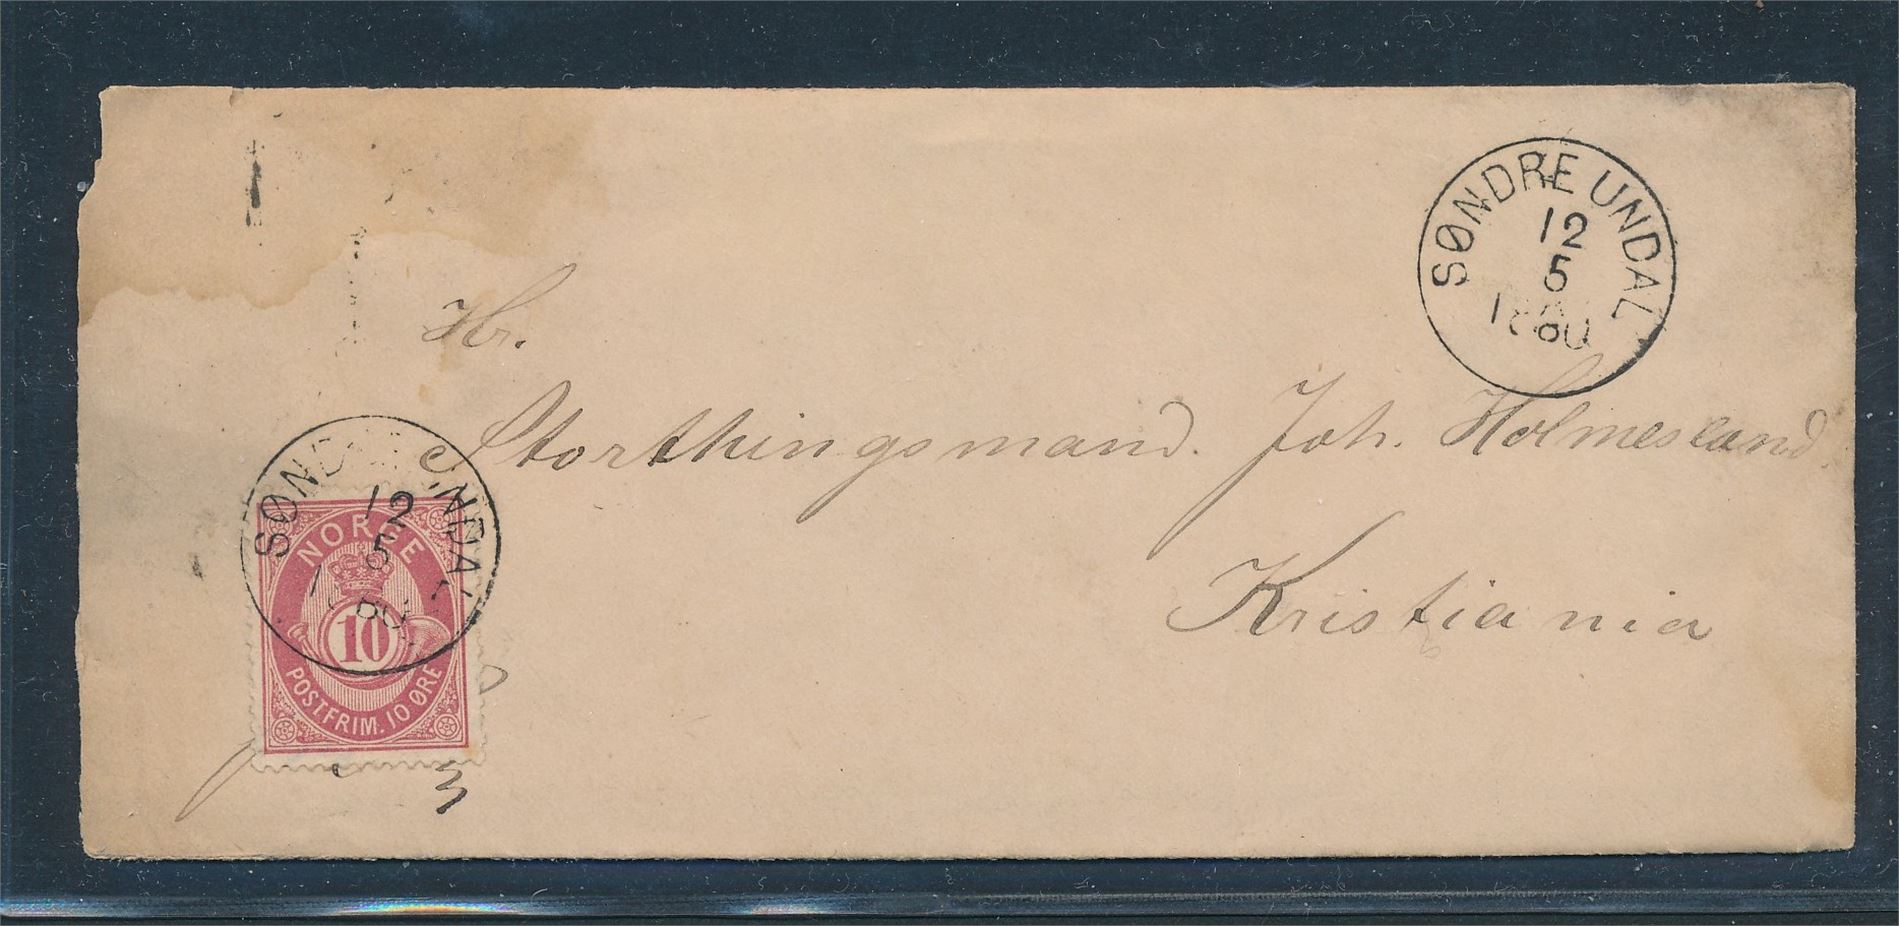 SØNDRE UNDAL
12
5
1880
Hr.
Storthingsmand. Joh. Holmesland.
Kristiania
SØNDRE UNDAL
12
5
1880
NORGE
10
POSTFRIM. 10 ØRE